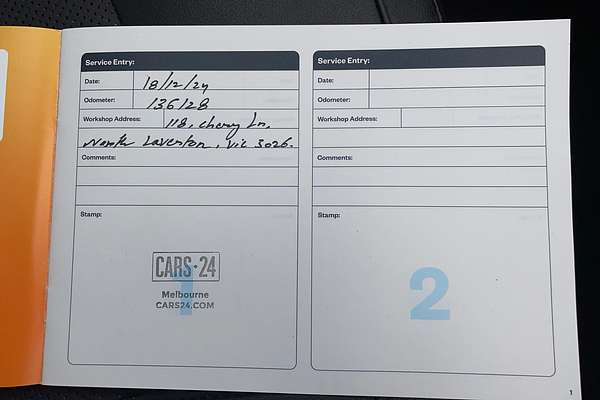 Service Entry:
Date: 18/12/24
Odometer: 136128
Workshop Address: 118, Cherry Ln,
North Laverton, Vic 3026.
Comments:
Stamp:
1
CARS·24
Melbourne
CARS24.COM
Service Entry:
Date:
Odometer:
Workshop Address:
Comments:
Stamp:
2
1